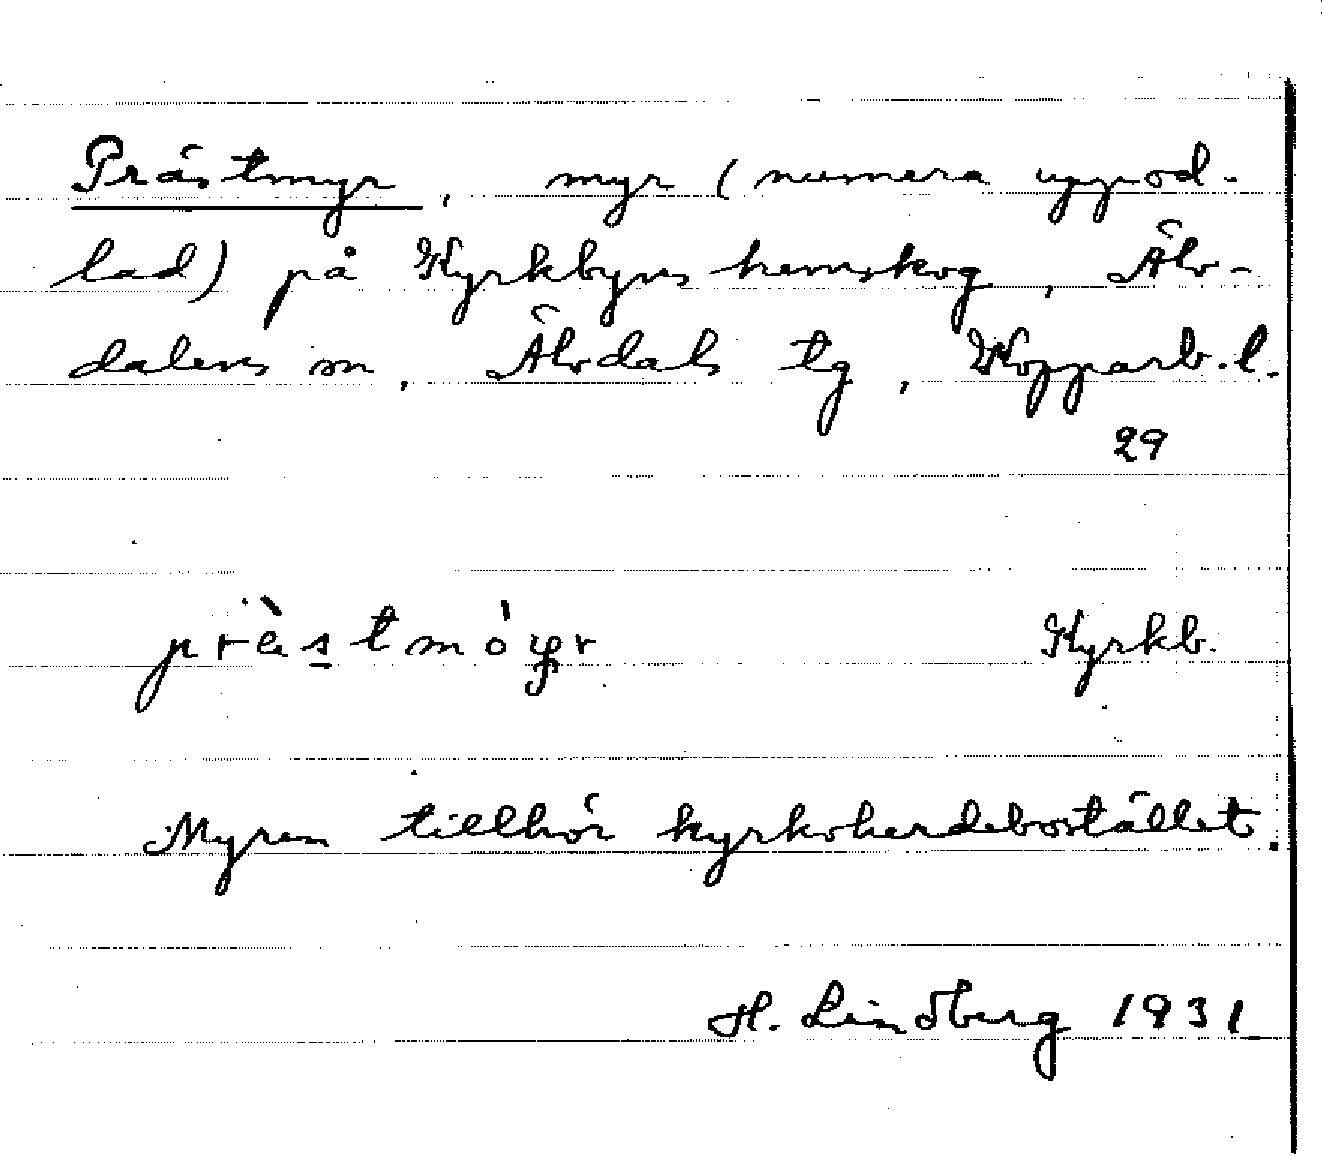 Prästmyr, myr (numera uppod-
lad) på Kyrkbyns hemskog, Älv-
dalens sn, Älvdals tg, Kopparb. l.
29
Kyrkb.
Myren tillhör kyrkoherdebostället.
H. Lindberg 1931